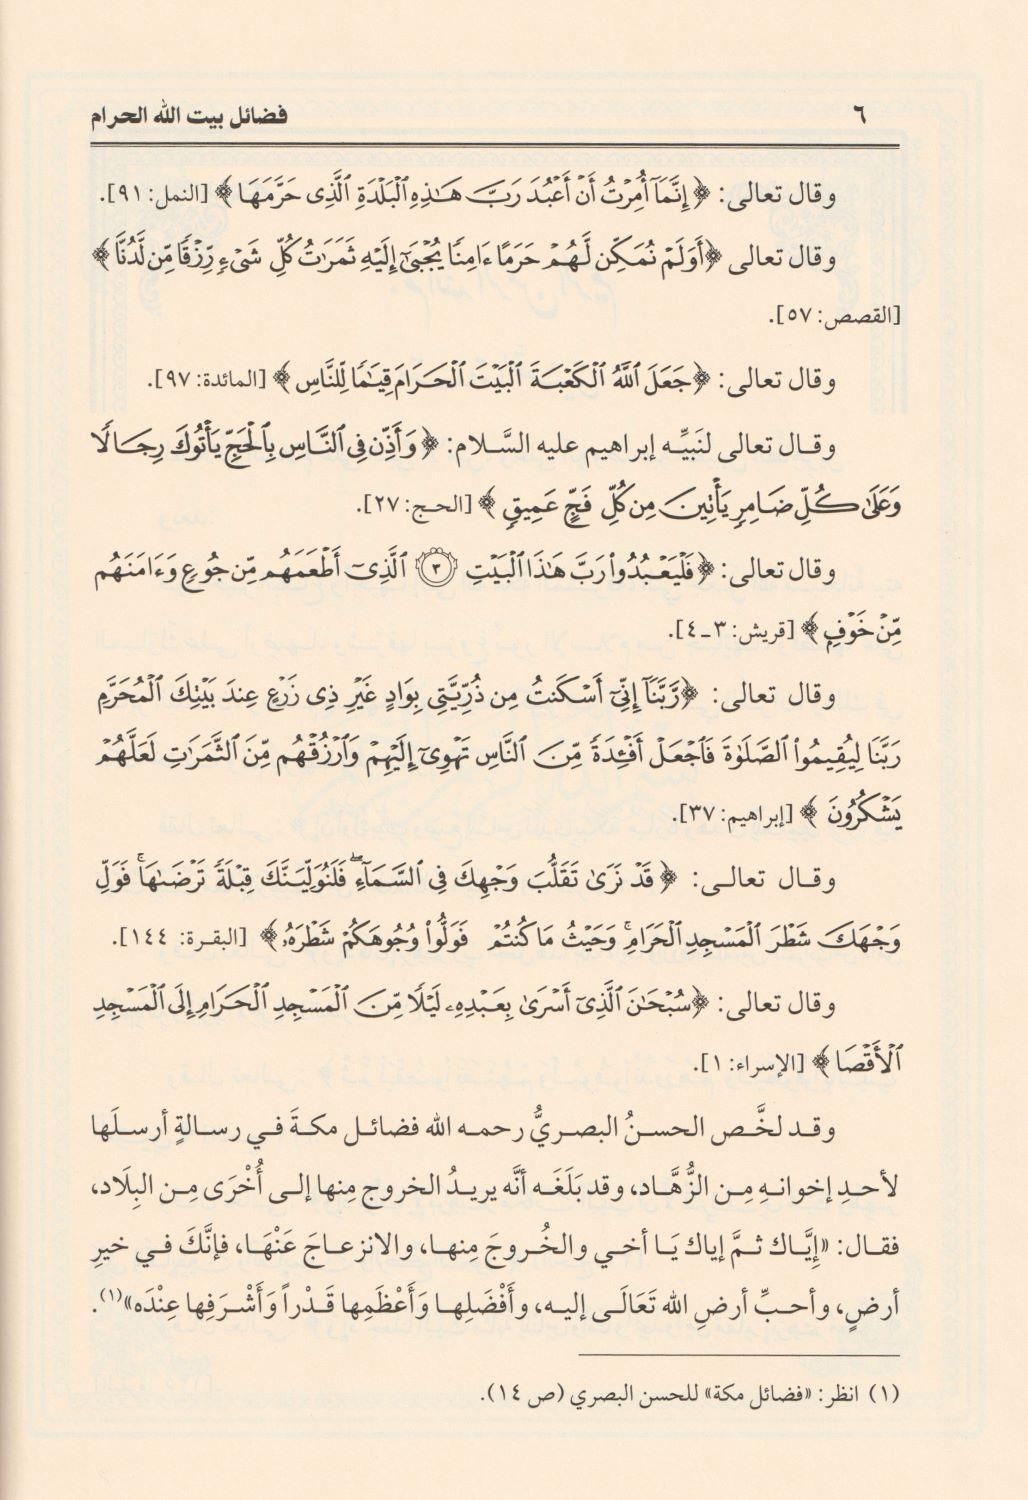 ٦ فضائل بيت الله الحرام
وقال تعالى: ﴿إِنَّمَآ أُمِرْتُ أَنْ أَعْبُدَ رَبَّ هَـٰذِهِ ٱلْبَلْدَةِ ٱلَّذِى حَرَّمَهَا﴾ [النمل: ٩١].
وقال تعالى ﴿أَوَلَمْ نُمَكِّن لَّهُمْ حَرَمًا ءَامِنًا يُجْبَىٰٓ إِلَيْهِ ثَمَرَٰتُ كُلِّ شَىْءٍ رِّزْقًا مِّن لَّدُنَّا﴾
[القصص: ٥٧].
وقال تعالى: ﴿جَعَلَ ٱللَّهُ ٱلْكَعْبَةَ ٱلْبَيْتَ ٱلْحَرَامَ قِيَـٰمًا لِّلنَّاسِ﴾ [المائدة: ٩٧].
وقال تعالى لنَبيِّه إبراهيم عليه السَّلام: ﴿وَأَذِّن فِى ٱلنَّاسِ بِٱلْحَجِّ يَأْتُوكَ رِجَالًا
وَعَلَىٰ كُلِّ ضَامِرٍ يَأْتِينَ مِن كُلِّ فَجٍّ عَمِيقٍ﴾ [الحج: ٢٧].
وقال تعالى: ﴿فَلْيَعْبُدُوا۟ رَبَّ هَـٰذَا ٱلْبَيْتِ ٣ ٱلَّذِىٓ أَطْعَمَهُم مِّن جُوعٍ وَءَامَنَهُم
مِّنْ خَوْفٍۭ﴾ [قريش: ٣-٤].
وقال تعالى: ﴿رَّبَّنَآ إِنِّىٓ أَسْكَنتُ مِن ذُرِّيَّتِى بِوَادٍ غَيْرِ ذِى زَرْعٍ عِندَ بَيْتِكَ ٱلْمُحَرَّمِ
رَبَّنَا لِيُقِيمُوا۟ ٱلصَّلَوٰةَ فَٱجْعَلْ أَفْـِٔدَةً مِّنَ ٱلنَّاسِ تَهْوِىٓ إِلَيْهِمْ وَٱرْزُقْهُم مِّنَ ٱلثَّمَرَٰتِ لَعَلَّهُمْ
يَشْكُرُونَ﴾ [إبراهيم: ٣٧].
وقال تعالى: ﴿قَدْ نَرَىٰ تَقَلُّبَ وَجْهِكَ فِى ٱلسَّمَآءِ ۖ فَلَنُوَلِّيَنَّكَ قِبْلَةً تَرْضَىٰهَا ۚ فَوَلِّ
وَجْهَكَ شَطْرَ ٱلْمَسْجِدِ ٱلْحَرَامِ ۚ وَحَيْثُ مَا كُنتُمْ فَوَلُّوا۟ وُجُوهَكُمْ شَطْرَهُۥ﴾ [البقرة: ١٤٤].
وقال تعالى: ﴿سُبْحَـٰنَ ٱلَّذِىٓ أَسْرَىٰ بِعَبْدِهِۦ لَيْلًا مِّنَ ٱلْمَسْجِدِ ٱلْحَرَامِ إِلَى ٱلْمَسْجِدِ
ٱلْأَقْصَا﴾ [الإسراء: ١].
وقد لخَّص الحسنُ البصريُّ رحمه الله فضائل مكةَ في رسالةٍ أرسلَها
لأحدِ إخوانهِ مِن الزُّهَّاد، وقد بَلَغَه أنَّه يريدُ الخروج مِنها إلى أُخْرَى مِن البِلَاد،
فقال: «إِيَّاك ثمَّ إياك يَا أخي والخُروجَ مِنها، والانزعاجَ عَنْهَا، فإنَّكَ في خيرِ
أرضٍ، وأحبِّ أرضِ الله تَعَالَى إليه، وأَفْضَلِها وَأَعْظَمِها قَدْراً وَأَشْرَفِها عِنْدَه»(١).
(١) انظر: «فضائل مكة» للحسن البصري (ص ١٤).